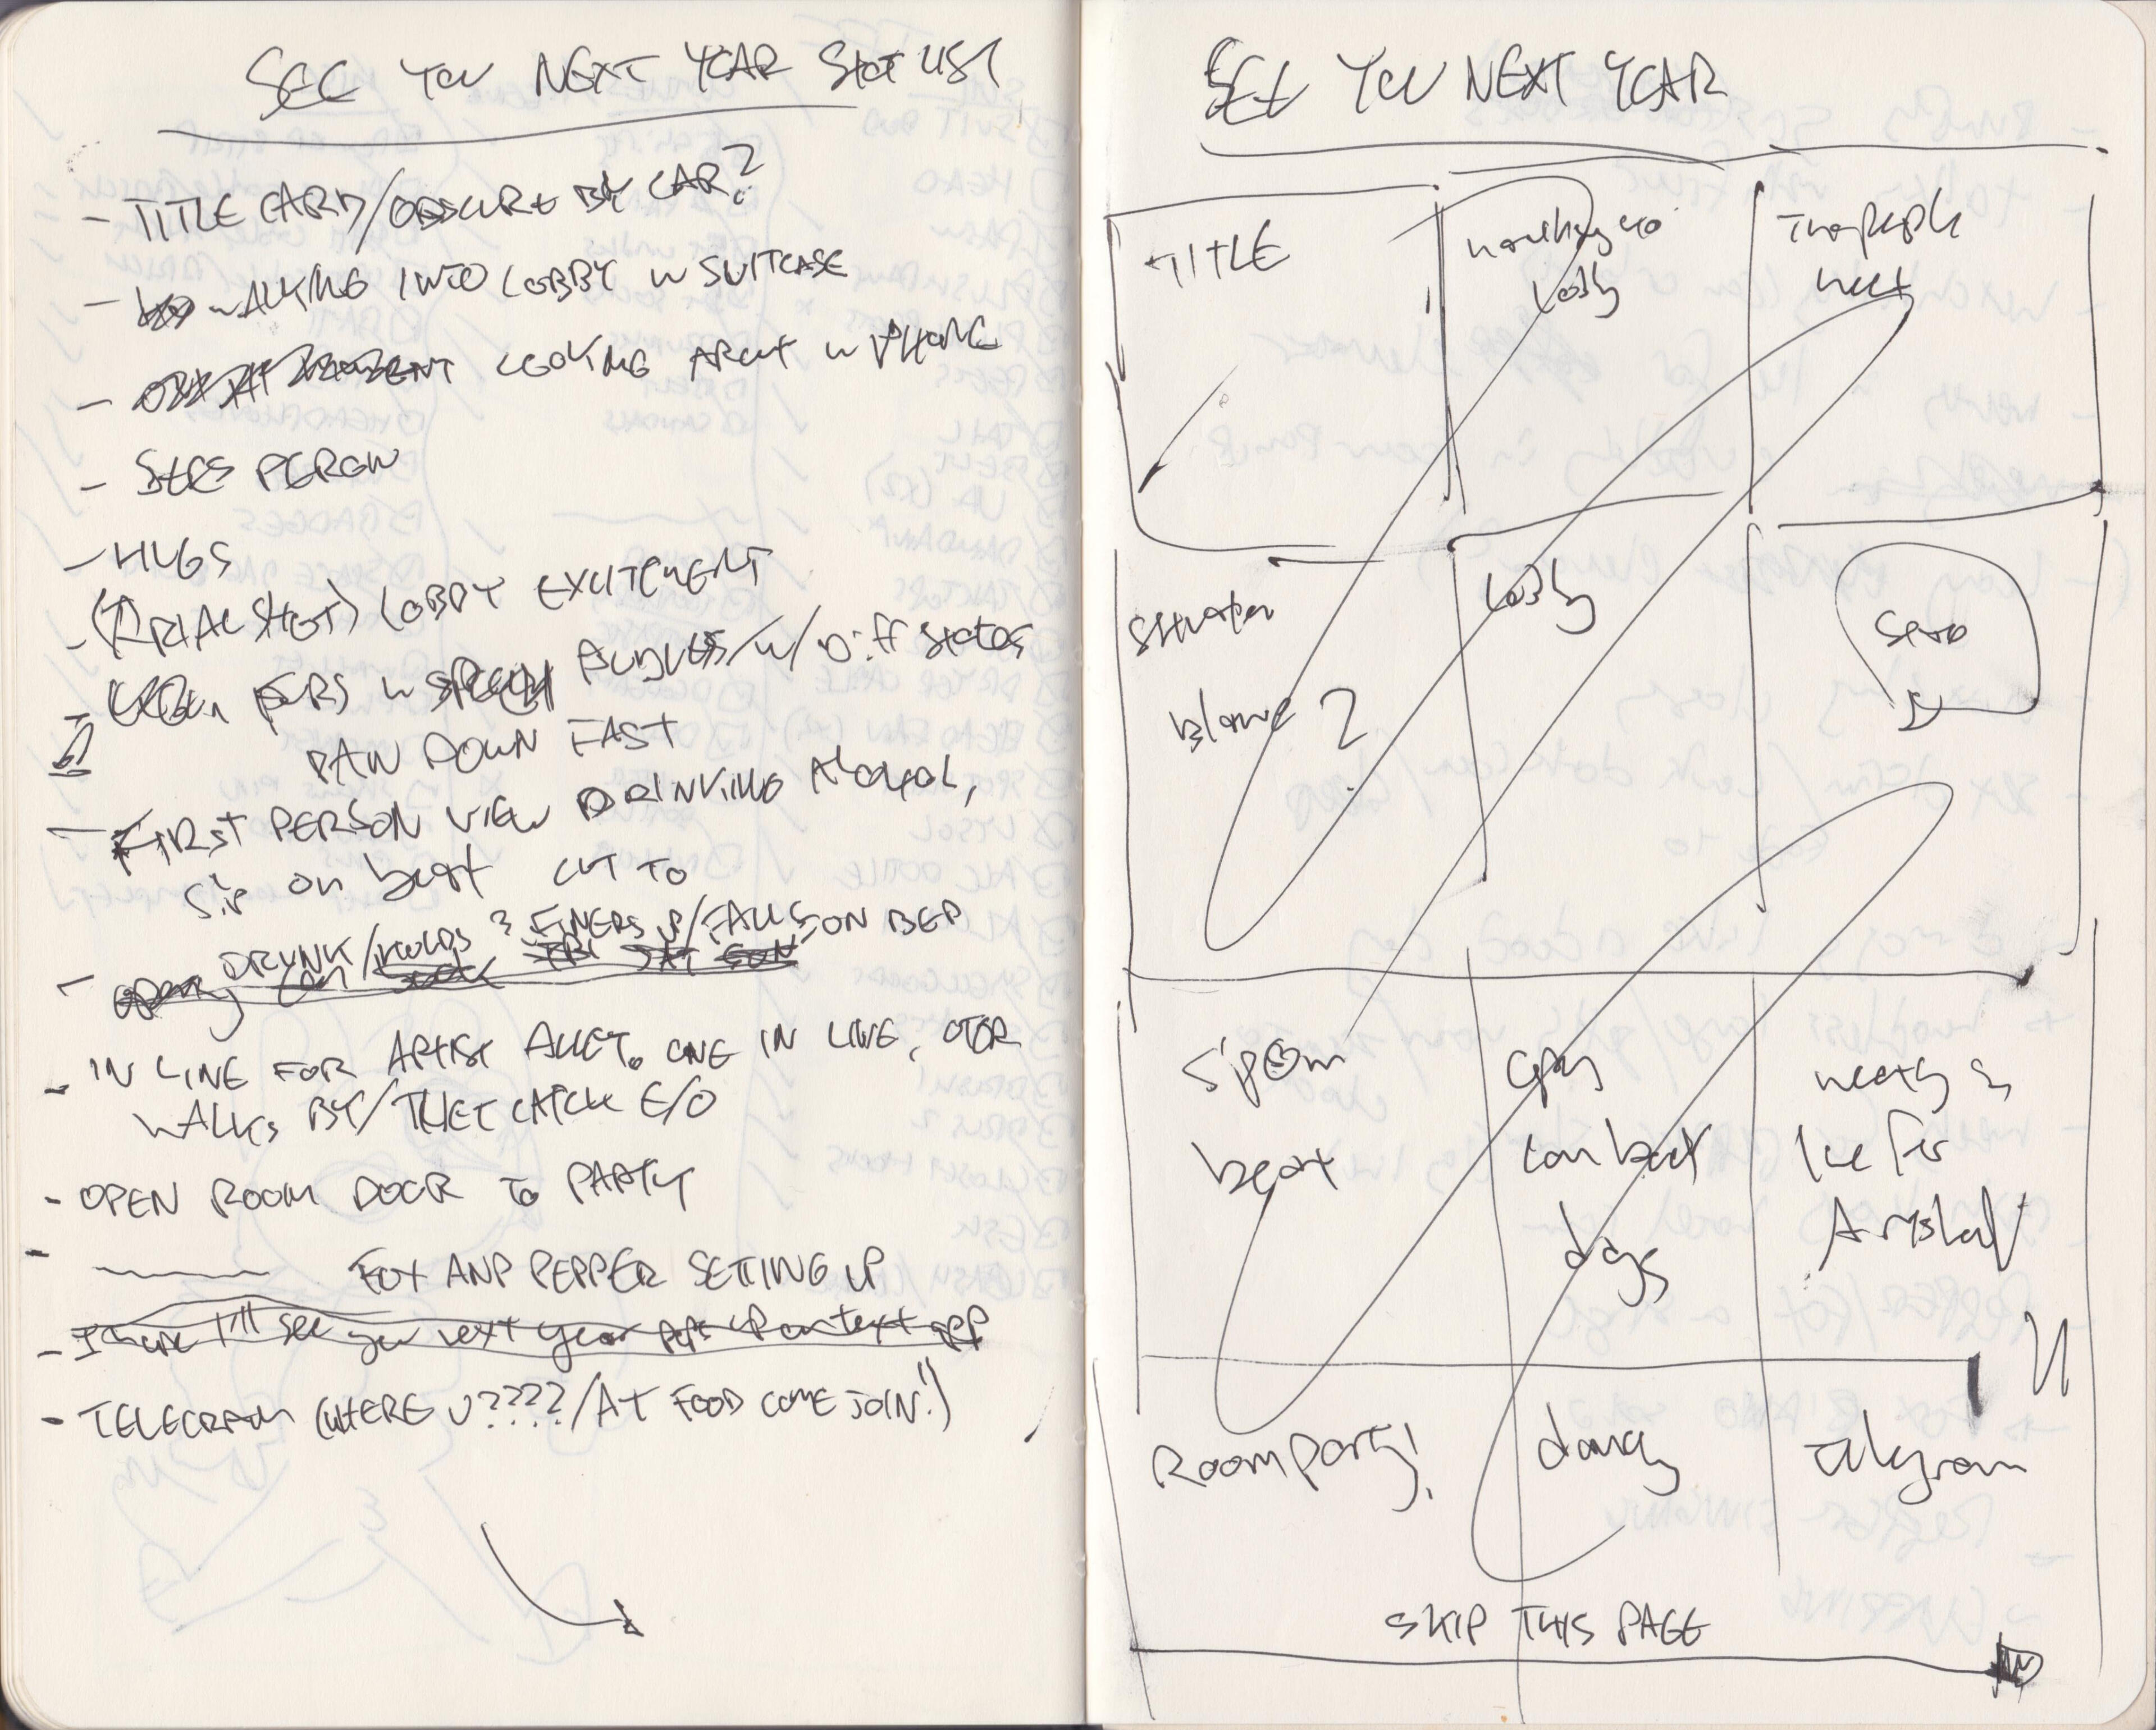 SEE YOU NEXT YEAR SHOT LIST
- TITLE CARD/OBSCURE BY CAR?
- WALKING INTO LOBBY W SUITCASE
- LOOKING AROUT W PHONE
- SEES PERON
- HUGS
- (ARIAL SHOT) LOBBY EXCITEMENT
- W/ Diff States
PAN DOWN FAST
- FIRST PERSON VIEW DRINKING ALCOHOL,
Sip on beat CUT TO
DRUNK/HOLDS 3 FINERS UP/FALLS ON BED
-
- IN LINE FOR ARTIST ALLEY. ONE IN LINE, OTER
WALKS BY/THEY CATCH E/O
- OPEN ROOM DOOR TO PARTY
- FOX AND PEPPER SETTING UP
- I hope I'll see you next year pops up on text app
- TELEGRAM (WHERE U????/AT FOOD COME JOIN!)
SEE YOU NEXT YEAR
TITLE
walking to
lobby
Two people
meet
lobby
Blame ?
Sip On
beat
Open
con beat
days
meeting in
line for
Room party!
dancing
telegram
SKIP THIS PAGE